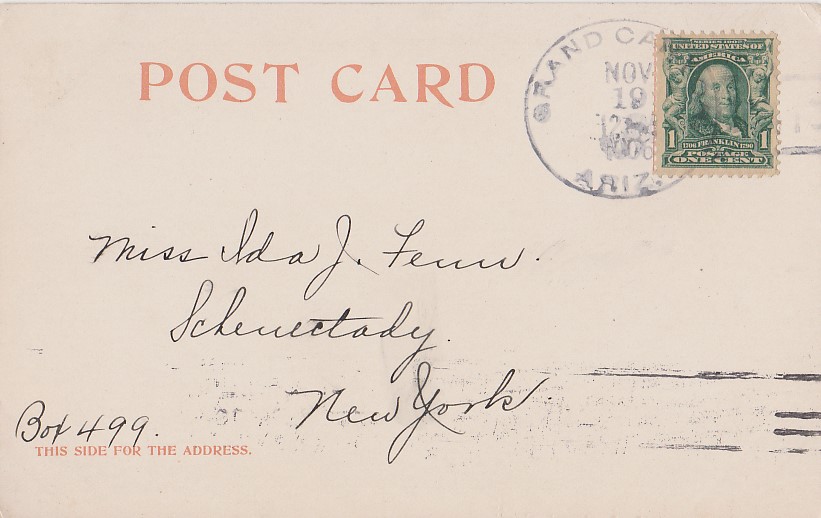 POST CARD
GRAND CA
NOV
19
1906
ARIZ.
SERIES 1902
UNITED STATES OF
AMERICA
1 1706 FRANKLIN 1790 1
POSTAGE
ONE CENT
Miss Ida J. Fenn.
Schenectady.
New York.
Box 499.
THIS SIDE FOR THE ADDRESS.